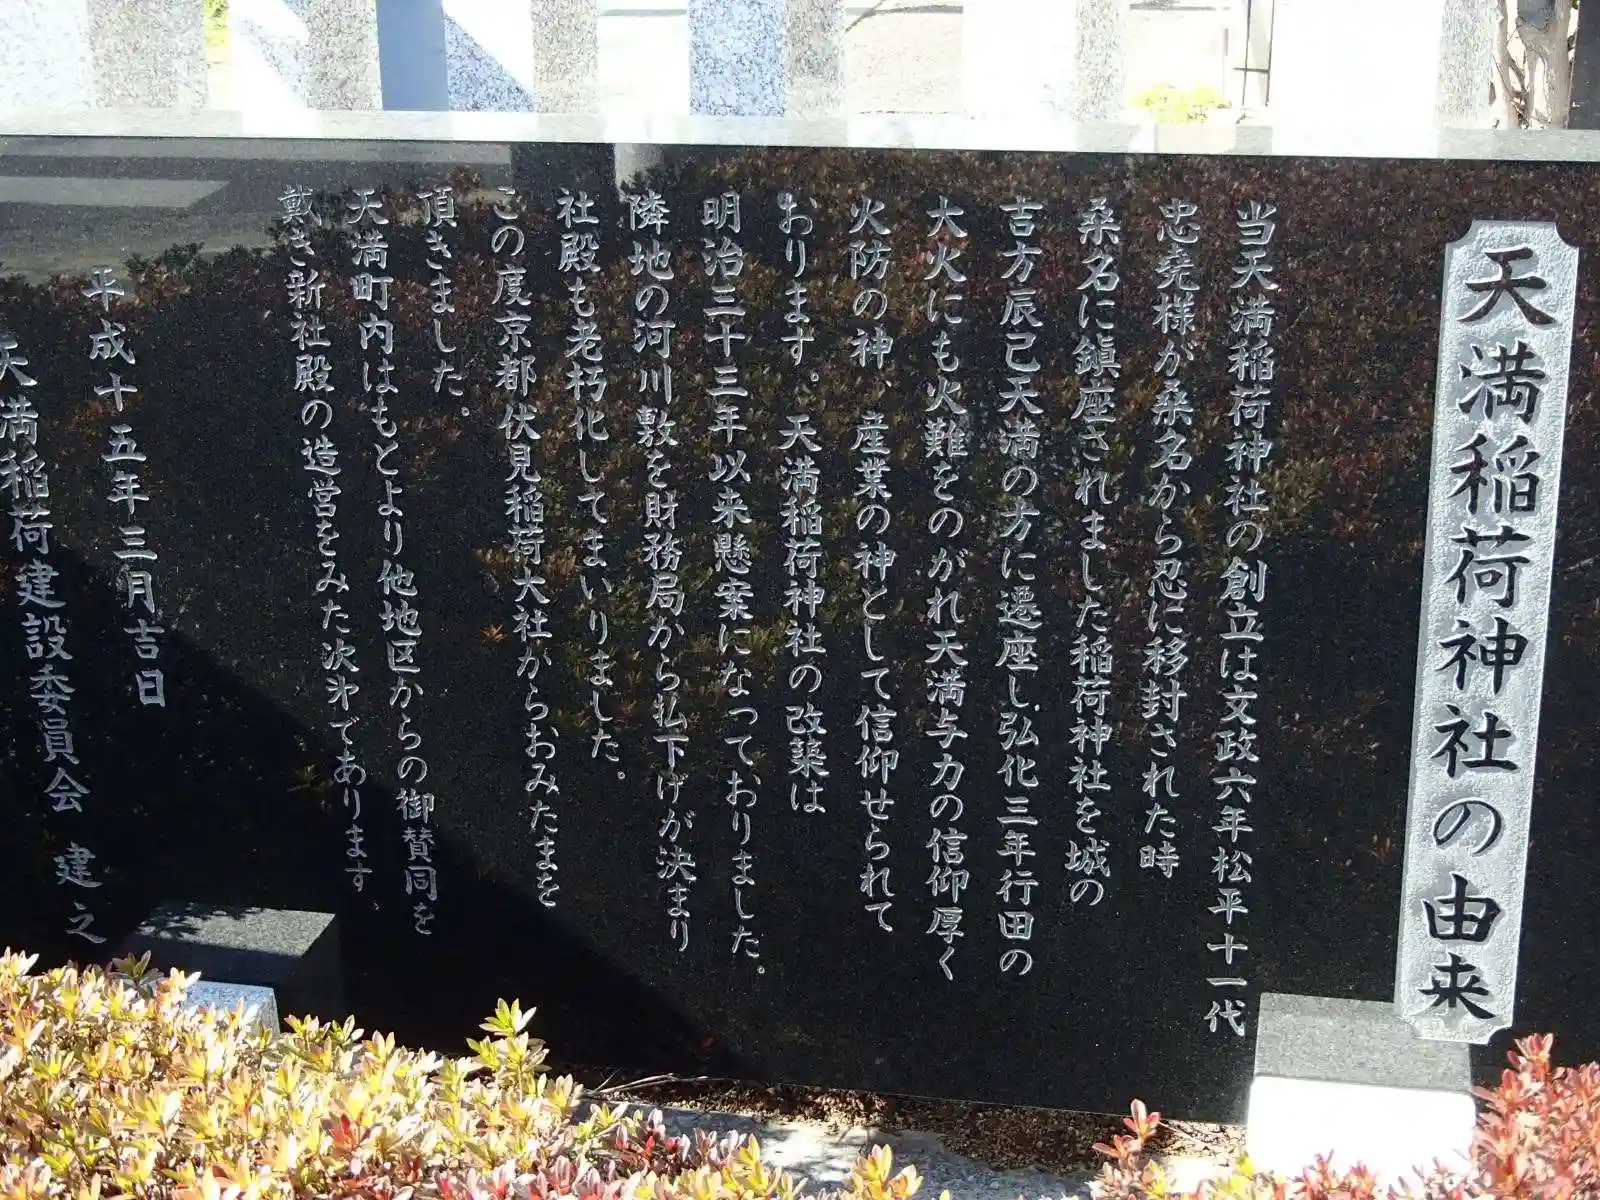 天満稲荷神社の由来
当天満稲荷神社の創立は文政六年松平十一代
忠堯様が桑名から忍に移封された時
桑名に鎮座されました稲荷神社を城の
吉方辰巳天満の方に遷座し弘化三年行田の
大火にも火難をのがれ天満与力の信仰厚く
火防の神、産業の神として信仰せられて
おります。天満稲荷神社の改築は
明治三十三年以来懸案になっておりました。
隣地の河川敷を財務局から払下げが決まり
社殿も老朽化してまいりました。
この度京都伏見稲荷大社からおみたまを
頂きました。
天満町内はもとより他地区からの御賛同を
戴き新社殿の造営をみた次㐧であります
平成十五年三月吉日
天満稲荷建設委員会 建之